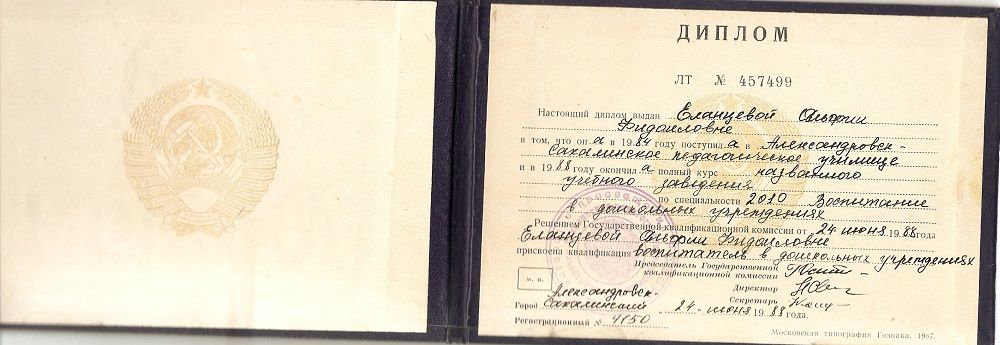 ДИПЛОМ
ЛТ № 457499
Настоящий диплом выдан Еланцевой Альфии
Фидаиловне
в том, что он а в 1984 году поступил а в Александровск-
Сахалинское педагогическое училище
и в 1988 году окончил а полный курс названного
учебного заведения
по специальности 2010 Воспитание
в дошкольных учреждениях
Решением Государственной квалификационной комиссии от 24 июня 1988 года
Еланцевой Альфии Фидаиловне
присвоена квалификация воспитатель в дошкольных учреждениях
Председатель Государственной
квалификационной комиссии
Директор
Секретарь
м. п.
Александровск-
Город Сахалинский 24 июня 1988 года.
Регистрационный № 4150
Московская типография Гознака, 1987.